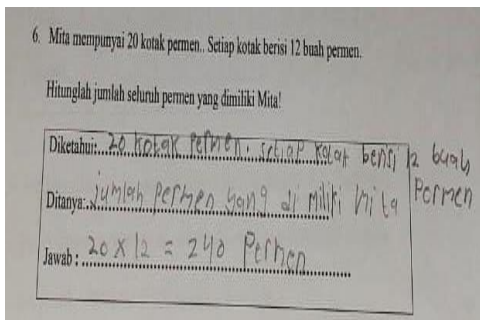 6. Mita mempunyai 20 kotak permen.. Setiap kotak berisi 12 buah permen.
Hitunglah jumlah seluruh permen yang dimiliki Mita!
Diketahui:...20 kotak Permen. setiap kotak berisi 12 buah Permen
Ditanya:..jumlah Permen yang di miliki Mita
Jawab : ..20 x 12 = 240 Permen